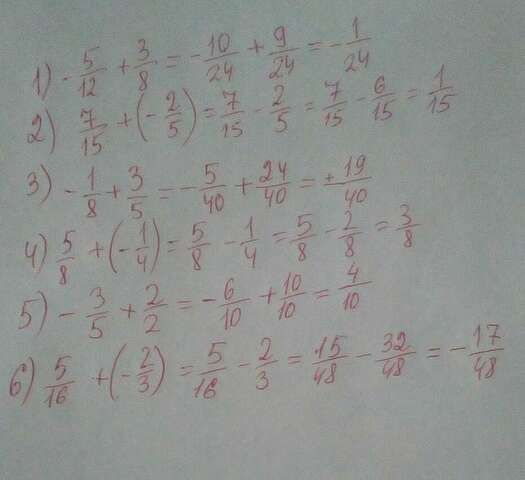 1) - 5/12 + 3/8 = - 10/24 + 9/24 = - 1/24
2) 7/15 + (- 2/5) = 7/15 - 2/5 = 7/15 - 6/15 = 1/15
3) - 1/8 + 3/5 = - 5/40 + 24/40 = + 19/40
4) 5/8 + (- 1/4) = 5/8 - 1/4 = 5/8 - 2/8 = 3/8
5) - 3/5 + 2/2 = - 6/10 + 10/10 = 4/10
6) 5/16 + (- 2/3) = 5/16 - 2/3 = 15/48 - 32/48 = - 17/48